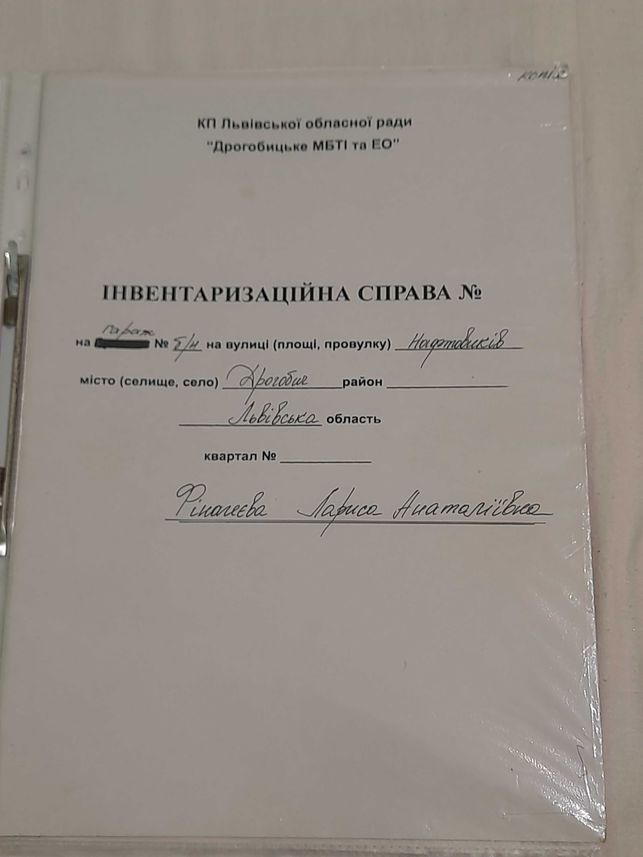 копія
КП Львівської обласної ради
"Дрогобицьке МБТІ та ЕО"
ІНВЕНТАРИЗАЦІЙНА СПРАВА №
гараж
на № б/н на вулиці (площі, провулку) Нафтовиків
місто (селище, село) Дрогобич район
Львівська область
квартал №
Лариса Анатоліївна